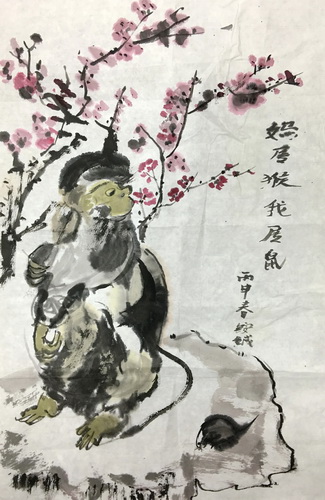 妈属猴我属鼠
丙申春